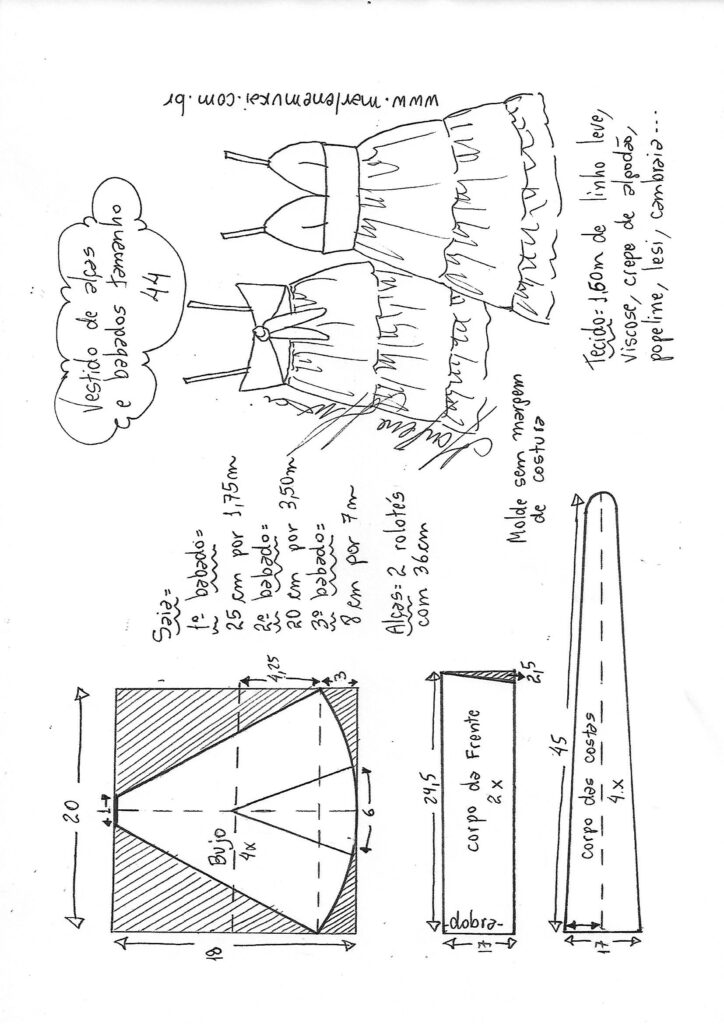 www.marlenemukai.com.br
Vestido de alças
e babados tamanho
44
Tecido=1,60m de linho leve,
viscose, crepe de algodão,
popeline, lesi, cambraia...
Saia=
1º babado=
25 cm por 1,75m
2º babado=
20 cm por 3,50m
3º babado=
8 cm por 7m
Alças=2 rolotés
com 36cm
Molde sem margem
de costura
20
1
18
Bujo
4x
4,25
3
6
24,5
corpo da Frente
2x
-dobra-
17
2,5
45
corpo das costas
4.x
17